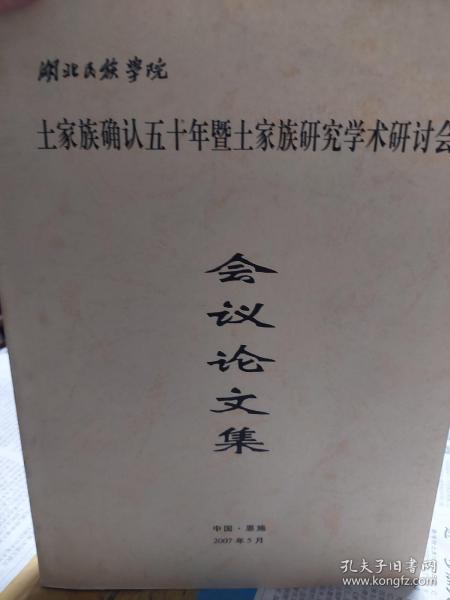 湖北民族学院
土家族确认五十年暨土家族研究学术研讨会
会
议
论
文
集
中国·恩施
2007年5月
孔夫子旧书网
www.kongfz.com